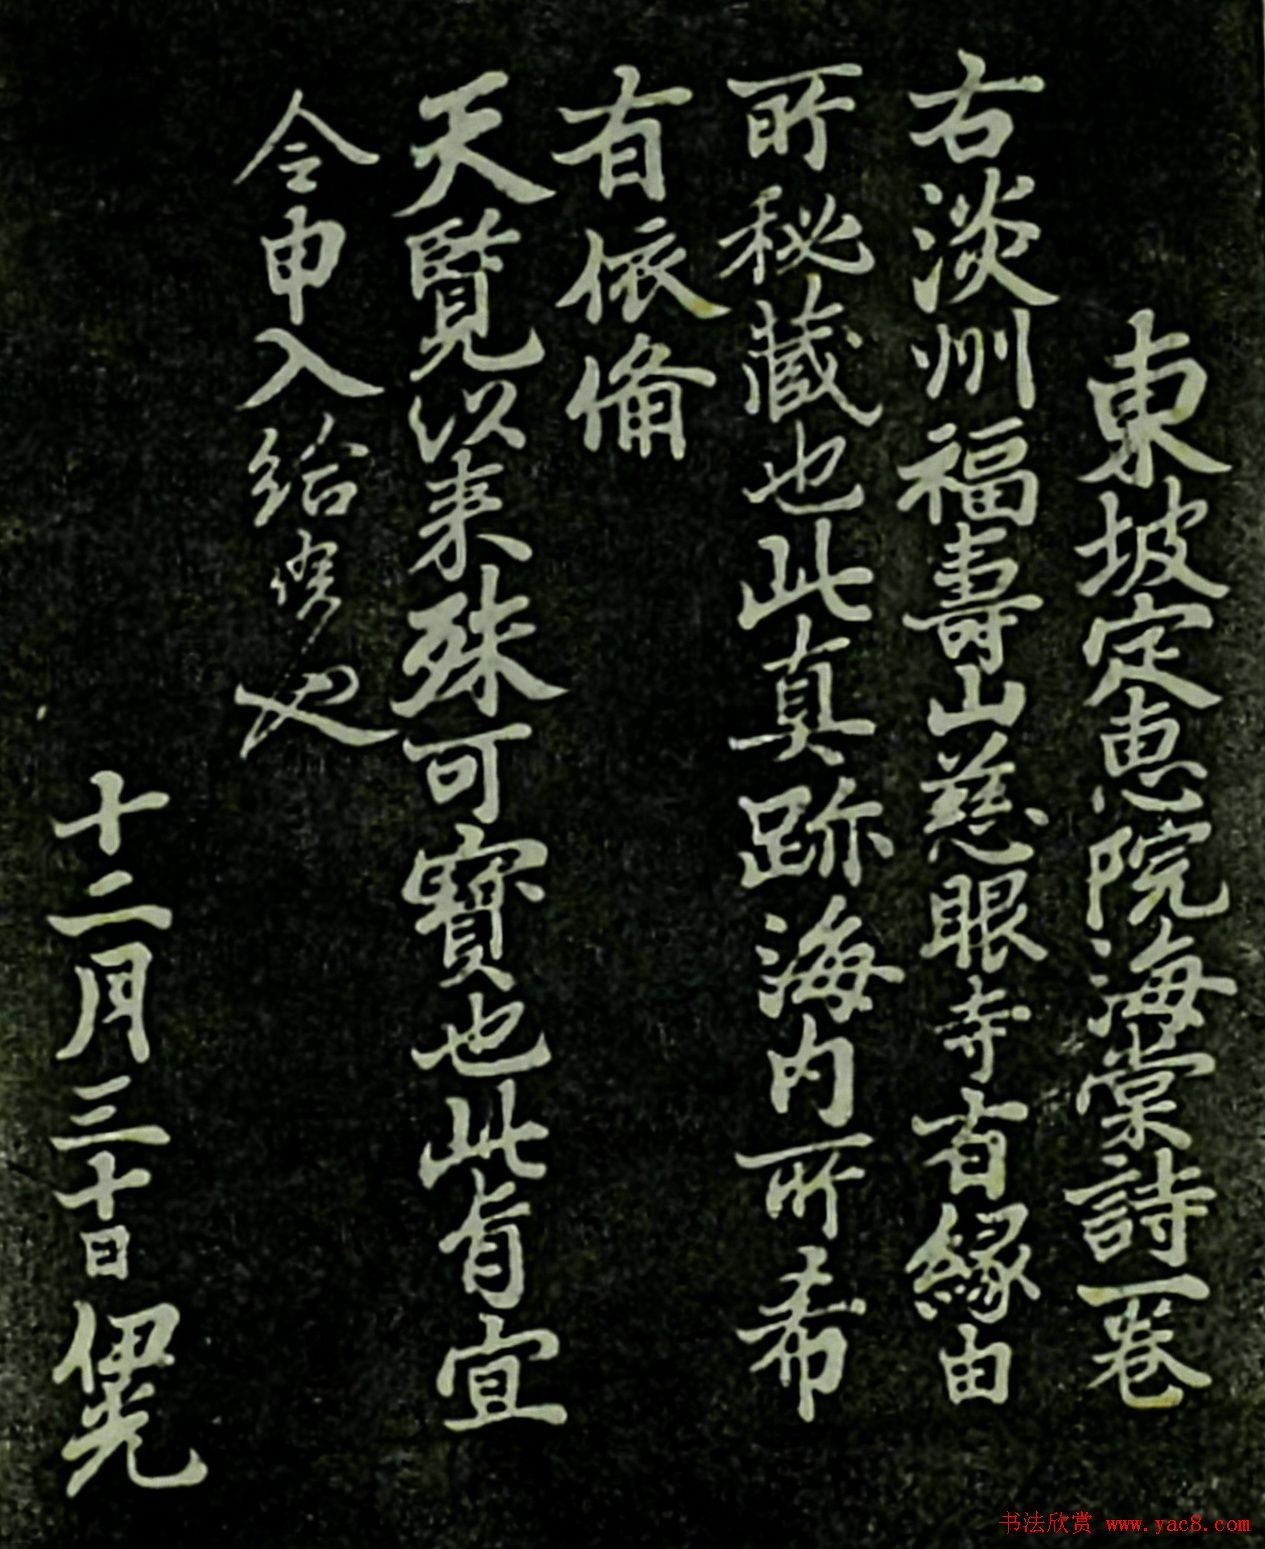 東坡定惠院海棠詩一卷
右淡州福壽山慈眼寺有緣由
所秘藏也此真跡海内所希
有依備
天覽以来殊可寶也此旨宜
令申入給也
十二月三十日伊光
书法欣赏 www.yac8.com